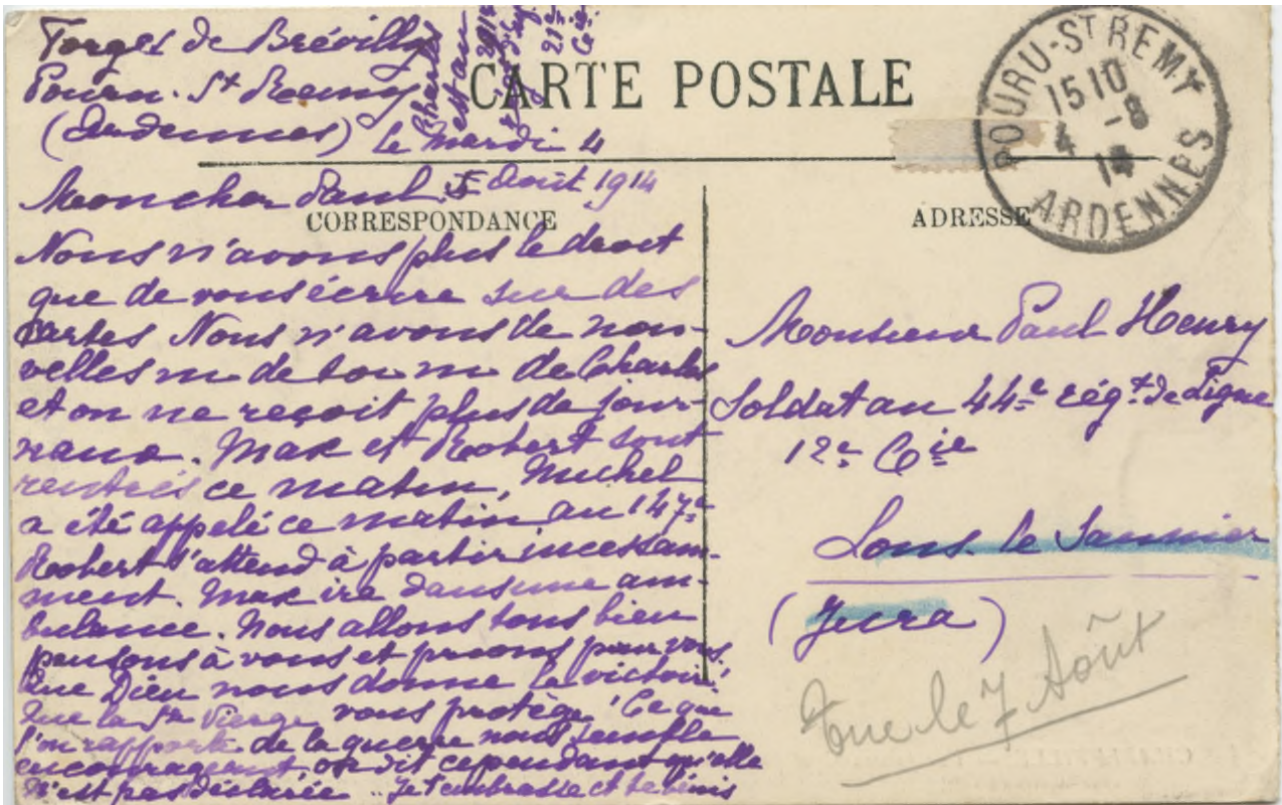 Forges de Brévilly
Pouru-St Remy
(Ardennes) le Mardi 4
Charles
est au
21e
Cie
CARTE POSTALE
POURU-ST REMY
1510
4 -8
14
ARDENNES
Mon cher Paul Août 1914
CORRESPONDANCE
ADRESSE
Nous n'avons plus le droit
que de vous écrire sur des
cartes Nous n'avons de nou-
velles ni de toi ni de Charles
et on ne reçoit plus de jour-
naux. Max et Robert sont
rentrés ce matin, Michel
a été appelé ce matin au 147e
Robert s'attend à partir incessam-
ment. Max ira dans une am-
bulance. Nous allons tous bien
pensons à vous et prions pour vous.
Que Dieu nous donne la victoire!
Que la Ste Vierge vous protège! Ce que
l'on rapporte de la guerre nous semble
encourageant, on dit cependant qu'elle
n'est pas déclarée. Je t'embrasse et te bénis
Monsieur Paul Henry
Soldat au 44e rég.t de Ligne
12e Cie
Lons-le Saunier
(Jura)
Tue le 7 Août